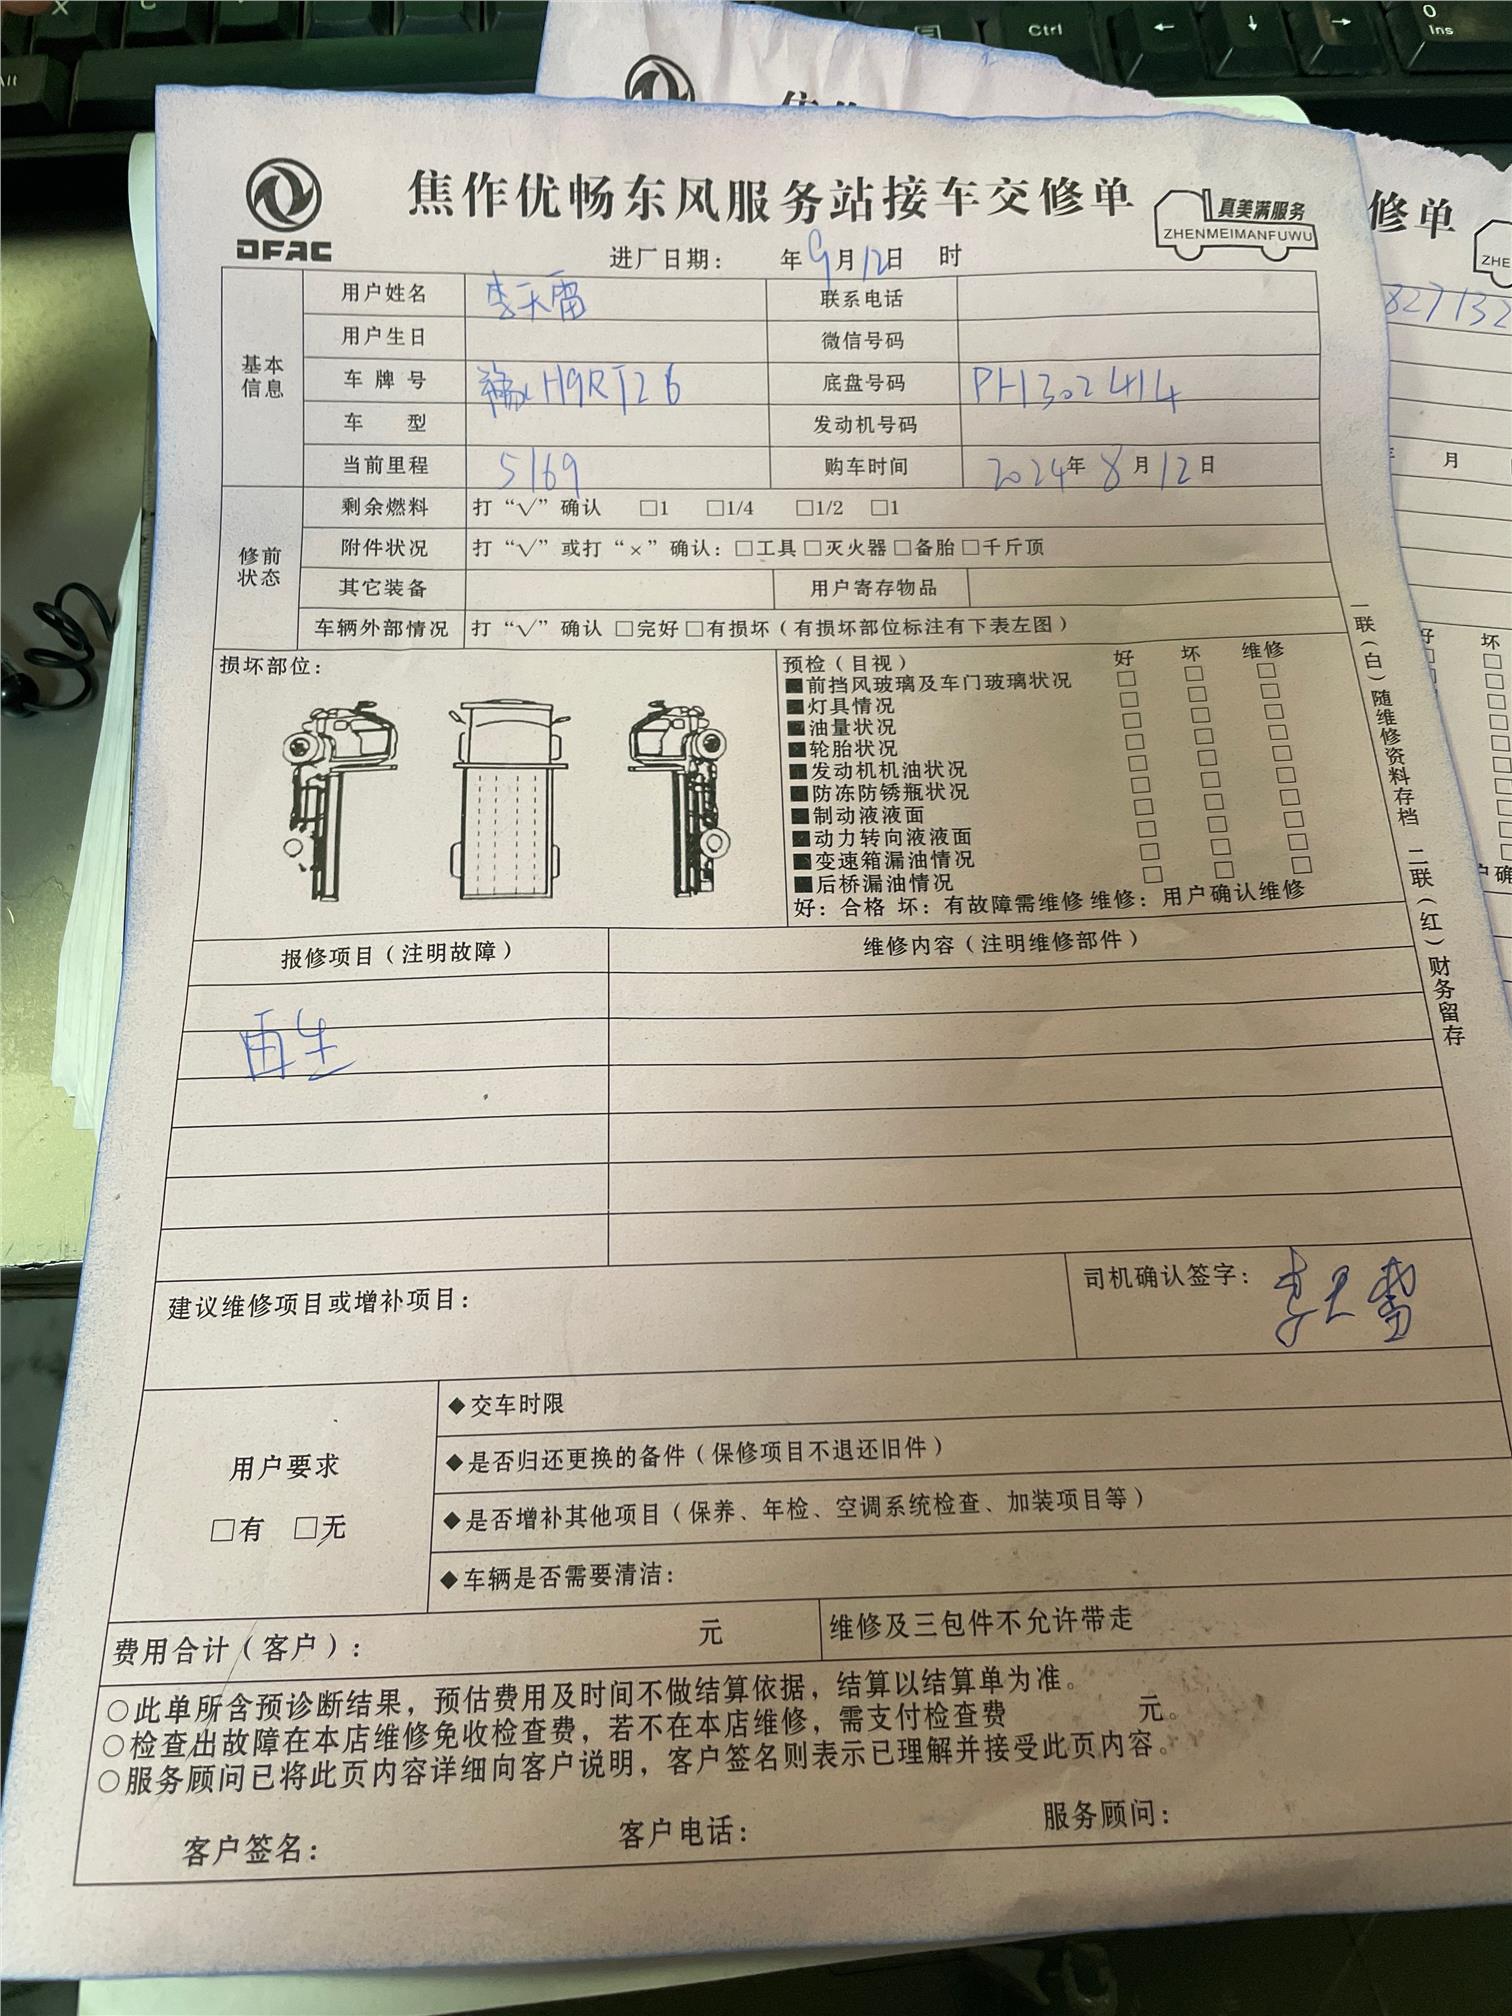 焦作优畅东风服务站接车交修单
DFAC
真美满服务
ZHENMEIMANFUWU
进厂日期： 年9月12日 时
基本信息
用户姓名 李天雷 联系电话
用户生日 微信号码
车牌号 豫H9RT26 底盘号码 PH302414
车型 发动机号码
当前里程 5169 购车时间 2024年8月12日
修前状态
剩余燃料 打“√”确认 □1 □1/4 □1/2 □1
附件状况 打“√”或打“×”确认：□工具□灭火器□备胎□千斤顶
其它装备 用户寄存物品
车辆外部情况 打“√”确认 □完好□有损坏（有损坏部位标注有下表左图）
损坏部位：
预检（目视） 好 坏 维修
■前挡风玻璃及车门玻璃状况 □ □ □
■灯具情况 □ □ □
■油量状况 □ □ □
■轮胎状况 □ □ □
■发动机机油状况 □ □ □
■防冻防锈瓶状况 □ □ □
■制动液液面 □ □ □
■动力转向液液面 □ □ □
■变速箱漏油情况 □ □ □
■后桥漏油情况 □ □ □
好：合格 坏：有故障需维修 维修：用户确认维修
一联（白）随维修资料存档 二联（红）财务留存
报修项目（注明故障） 维修内容（注明维修部件）
再生
建议维修项目或增补项目：
司机确认签字：李天雷
用户要求
□有 □无
◆交车时限
◆是否归还更换的备件（保修项目不退还旧件）
◆是否增补其他项目（保养、年检、空调系统检查、加装项目等）
◆车辆是否需要清洁：
费用合计（客户）： 元 维修及三包件不允许带走
○此单所含预诊断结果，预估费用及时间不做结算依据，结算以结算单为准。
○检查出故障在本店维修免收检查费，若不在本店维修，需支付检查费 元。
○服务顾问已将此页内容详细向客户说明，客户签名则表示已理解并接受此页内容。
客户签名： 客户电话： 服务顾问：
修单
ZHE
827132
月
坏
Ctrl
0
Ins
Alt
X
C